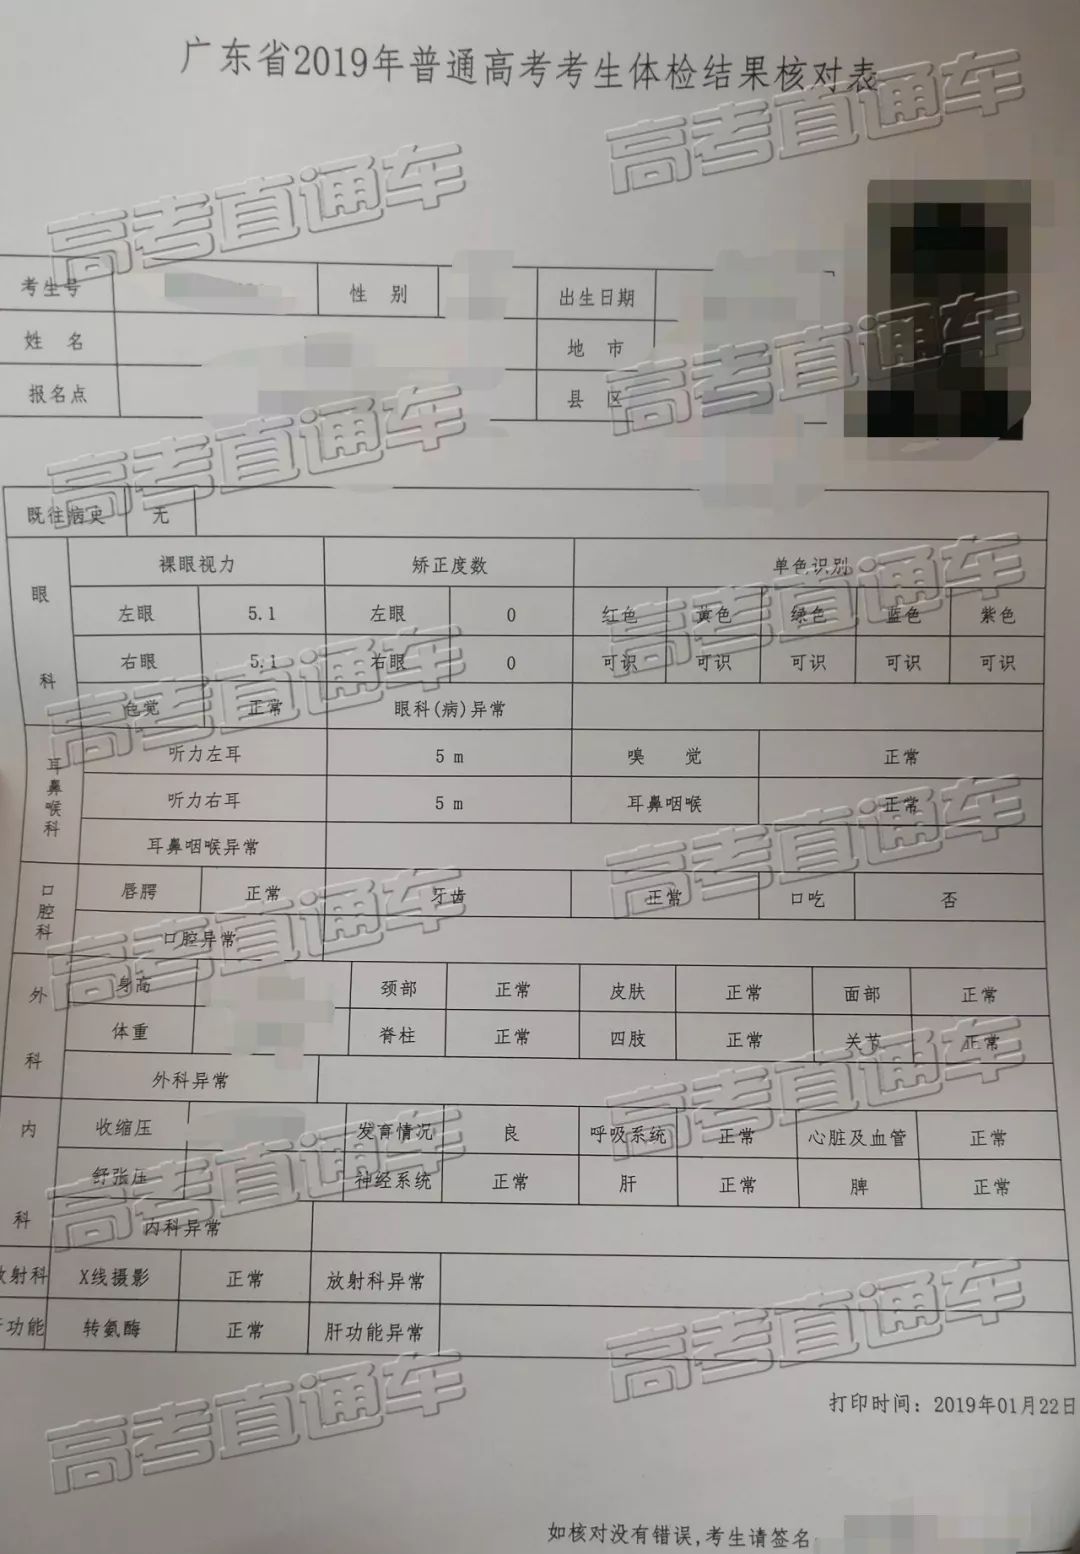 广东省2019年普通高考考生体检结果核对表
考生号 性 别 出生日期
姓 名 地 市
报名点 县 区
既往病史 无
眼科 裸眼视力 矫正度数 单色识别
左眼 5.1 左眼 0 红色 黄色 绿色 蓝色 紫色
右眼 5.1 右眼 0 可识 可识 可识 可识 可识
色觉 正常 眼科(病)异常
耳鼻喉科 听力左耳 5 m 嗅 觉 正常
听力右耳 5 m 耳鼻咽喉 正常
耳鼻咽喉异常
口腔科 唇腭 正常 牙齿 正常 口吃 否
口腔异常
外科 身高 颈部 正常 皮肤 正常 面部 正常
体重 脊柱 正常 四肢 正常 关节 正常
外科异常
内科 收缩压 发育情况 良 呼吸系统 正常 心脏及血管 正常
舒张压 神经系统 正常 肝 正常 脾 正常
内科异常
放射科 X线摄影 正常 放射科异常
功能 转氨酶 正常 肝功能异常
打印时间：2019年01月22日
如核对没有错误,考生请签名
高考直通车
高考直通车
高考直通车
高考直通车
高考直通车
高考直通车
高考直通车
高考直通车
高考直通车
高考直通车
高考直通车
高考直通车